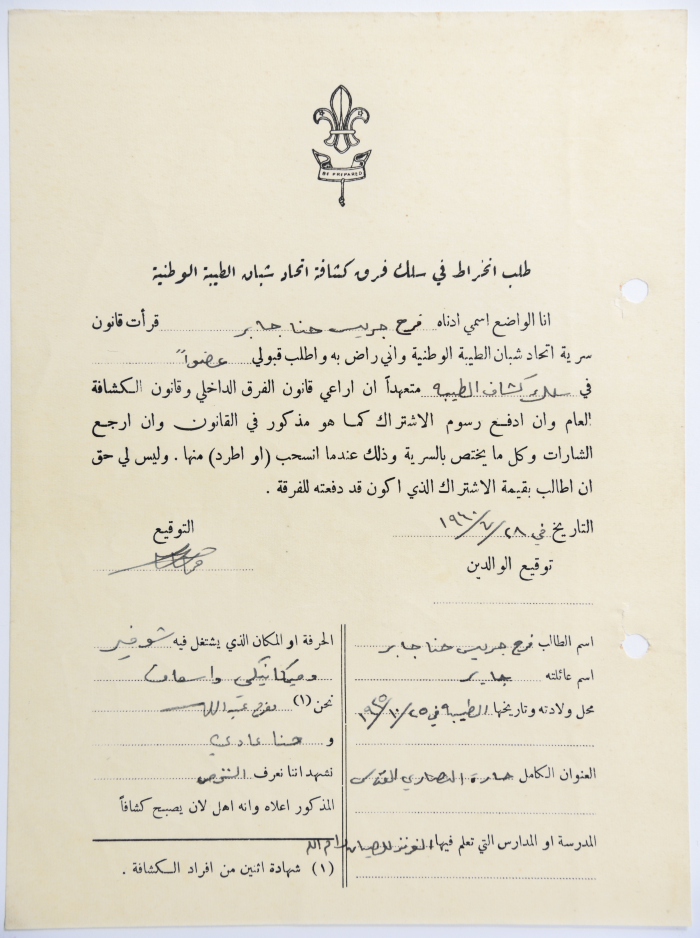 BE PREPARED
طلب انخراط في سلك فرق كشافة اتحاد شبان الطيبة الوطنية
انا الواضع اسمي ادناه فرح جريس حنا جابر قرأت قانون
سرية اتحاد شبان الطيبة الوطنية واني راض به واطلب قبولي عضواً
في سلك كشاف الطيبة متعهداً ان اراعي قانون الفرق الداخلي وقانون الكشافة
العام وان ادفع رسوم الاشتراك كما هو مذكور في القانون وان ارجع
الشارات وكل ما يختص بالسرية وذلك عندما انسحب (او اطرد) منها . وليس لي حق
ان اطالب بقيمة الاشتراك الذي اكون قد دفعته للفرقة .
التاريخ في ٢٨/٧/١٩٦٠
التوقيع
توقيع الوالدين
اسم الطالب فرح جريس حنا جابر
اسم عائلته جابر
محل ولادته وتاريخها الطيبة في ٢٥/١٠/١٩٣٥
العنوان الكامل حارة النصارى القدس
المدرسة او المدارس التي تعلم فيها الفرندز للصبيان رام الله
الحرفة او المكان الذي يشتغل فيه شوفير
وميكانيكي واسعاف
نحن (١) مفرح عبدالله
و حنا عادي
نشهد اننا نعرف الشخص
المذكور اعلاه وانه اهل لان يصبح كشافاً
(١) شهادة اثنين من افراد الكشافة .